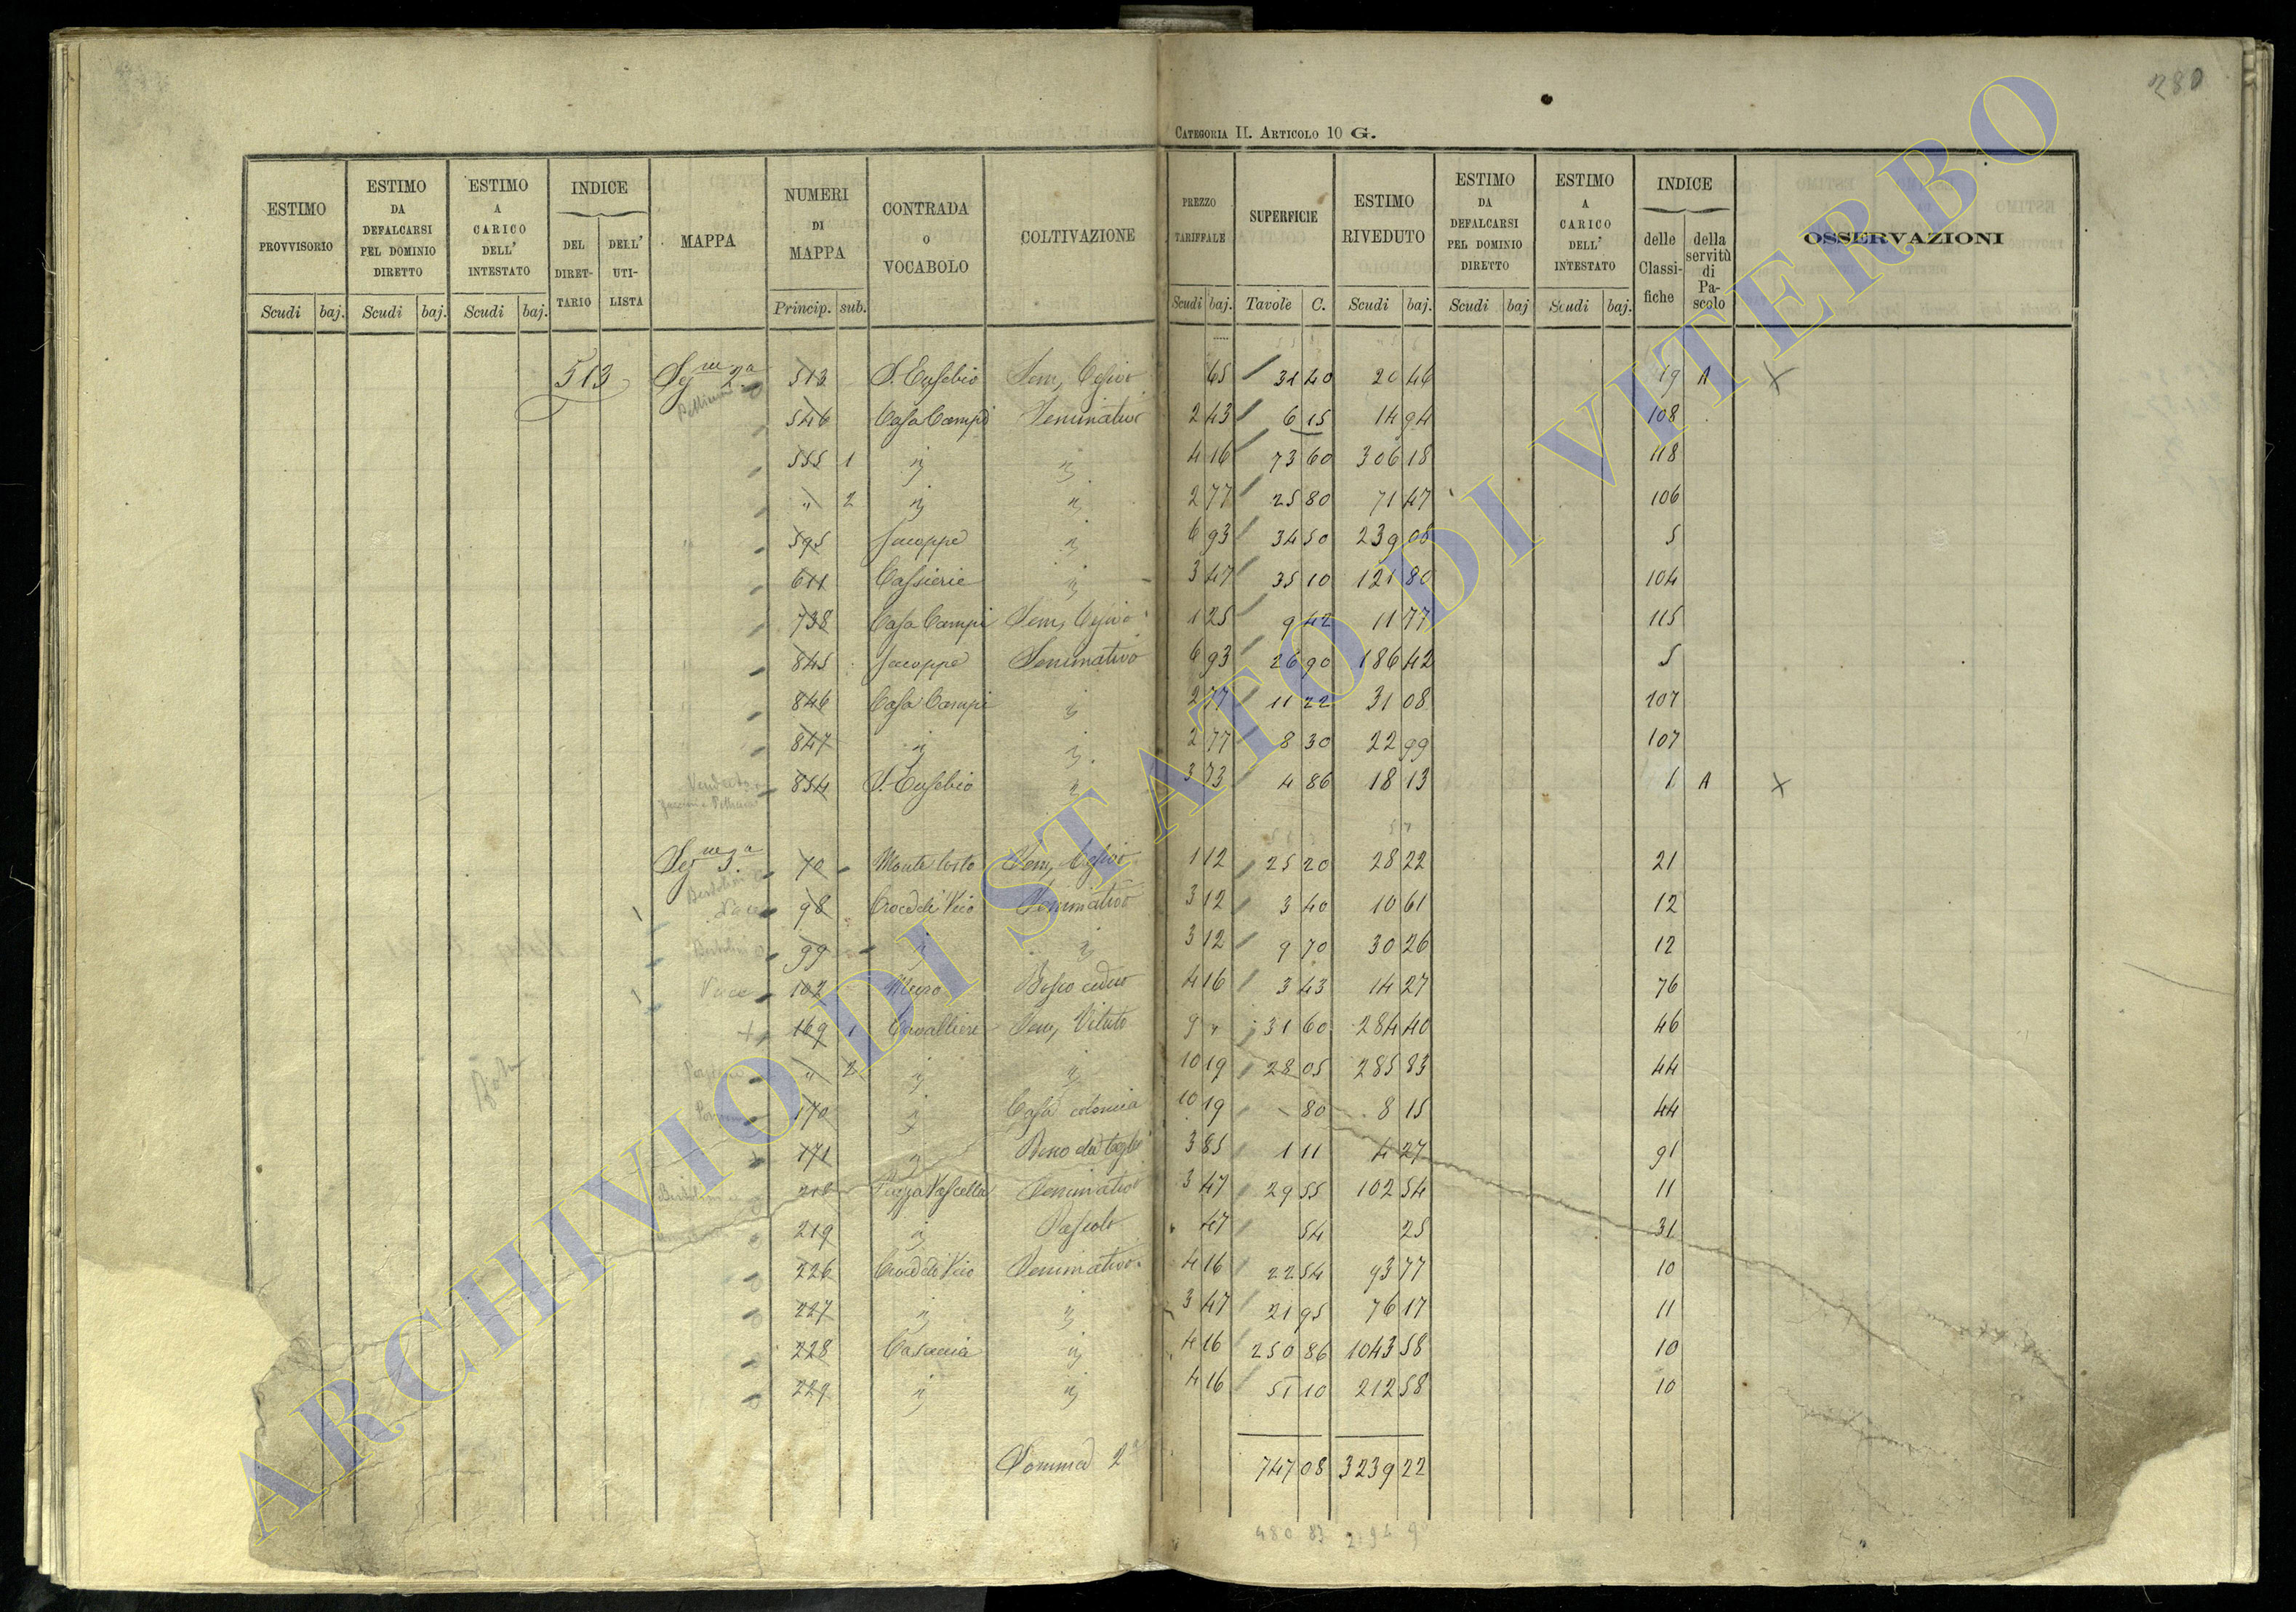 280
CATEGORIA II. ARTICOLO 10 G.
ESTIMO PROVVISORIO Scudi baj.
ESTIMO DA DEFALCARSI PEL DOMINIO DIRETTO Scudi baj.
ESTIMO A CARICO DELL' INTESTATO Scudi baj.
INDICE DEL DIRET-TARIO DELL' UTI-LISTA
MAPPA
NUMERI DI MAPPA Princip. sub.
CONTRADA O VOCABOLO
COLTIVAZIONE
PREZZO TARIFFALE Scudi baj.
SUPERFICIE Tavole C.
ESTIMO RIVEDUTO Scudi baj.
ESTIMO DA DEFALCARSI PEL DOMINIO DIRETTO Scudi baj
ESTIMO A CARICO DELL' INTESTATO Scudi baj.
INDICE delle Classi-fiche della servitù di Pa-scolo
OSSERVAZIONI
513 Segm 2.a 513 S. Eusebio Sem, Cesivo 65 31 40 20 46 19 A X
546 Casa Campi Seminativo 2 43 6 15 14 94 108
555 1 " " 4 16 73 60 306 18 118
" 2 " " 2 77 25 80 71 47 106
595 Jacoppe " 6 93 34 50 239 08 5
611 Cassierie " 3 47 35 10 121 80 104
738 Casa Campi Sem, Cesivo 1 25 9 42 11 77 115
845 Jacoppe Seminativo 6 93 26 90 186 42 5
846 Casa Campi " 2 77 11 22 31 08 107
847 " " 2 77 8 30 22 99 107
854 S. Eusebio " 3 73 4 86 18 13 1 A X
Segm 3.a 70 Monte Sem, Cesivo 1 12 25 20 28 22 21
98 Croce di Vico Seminativo 3 12 3 40 10 61 12
99 " " 3 12 9 70 30 26 12
102 Muro Bosco ceduo 4 16 3 43 14 27 76
169 1 Cavalliere Sem, Vitato 9 " 31 60 284 40 46
" 2 " " 10 19 28 05 285 83 44
170 " Casa colonica 10 19 80 8 15 44
171 " 3 85 1 11 4 27 91
218 Piazza Vascella Seminativo 3 47 29 55 102 54 11
219 " Pascolo 47 54 25 31
226 Croce di Vico Seminativo 4 16 22 54 93 77 10
227 " " 3 47 21 95 76 17 11
228 Casaccia " 4 16 250 86 1043 58 10
229 " " 4 16 51 10 212 58 10
Somma 2a 747 08 3239 22
480 83
ARCHIVIO DI STATO DI VITERBO